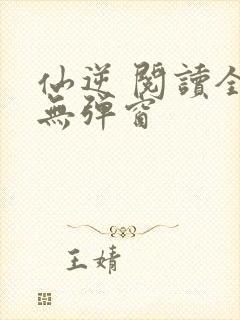 仙逆 閱讀全
無彈窗
王婧